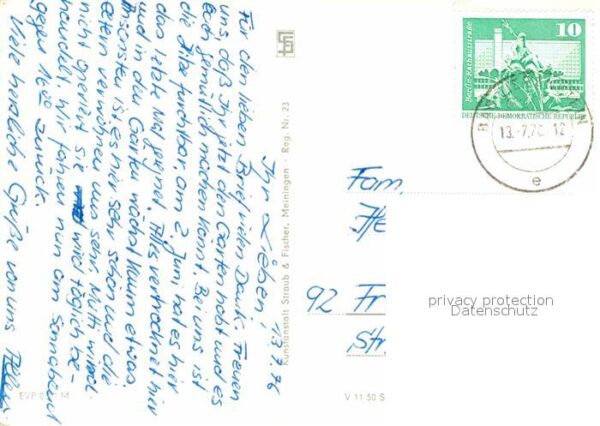 13.7.76
Ihr Lieben!
Für den lieben Brief vielen Dank. Freuen
uns, daß Ihr jetzt den Garten habt und es
Euch gemütlich machen könnt. Bei uns ist
die Hitze furchtbar, am 2. Juni hat es hier
das letzte Mal geregnet. Alles vertrocknet hier
und in den Gärten wächst kaum etwas.
Ansonsten ist es hier sehr schön und die
Eltern verwöhnen uns sehr. Mutti wird
nicht operiert sie wird täglich be-
handelt. Wir fahren nun am Sonnabend
gegen 16.00 zurück.
Viele herzliche Grüße von uns
Kunstanstalt Straub & Fischer, Meiningen Reg. Nr. 23
EVP M
V 11 50 S
10
Berlin · Rathausstraße
DEUTSCHE DEMOKRATISCHE REPUBLIK
13.-7.76 12
e
Fam.
He
92 Fr
Str
privacy protection
Datenschutz